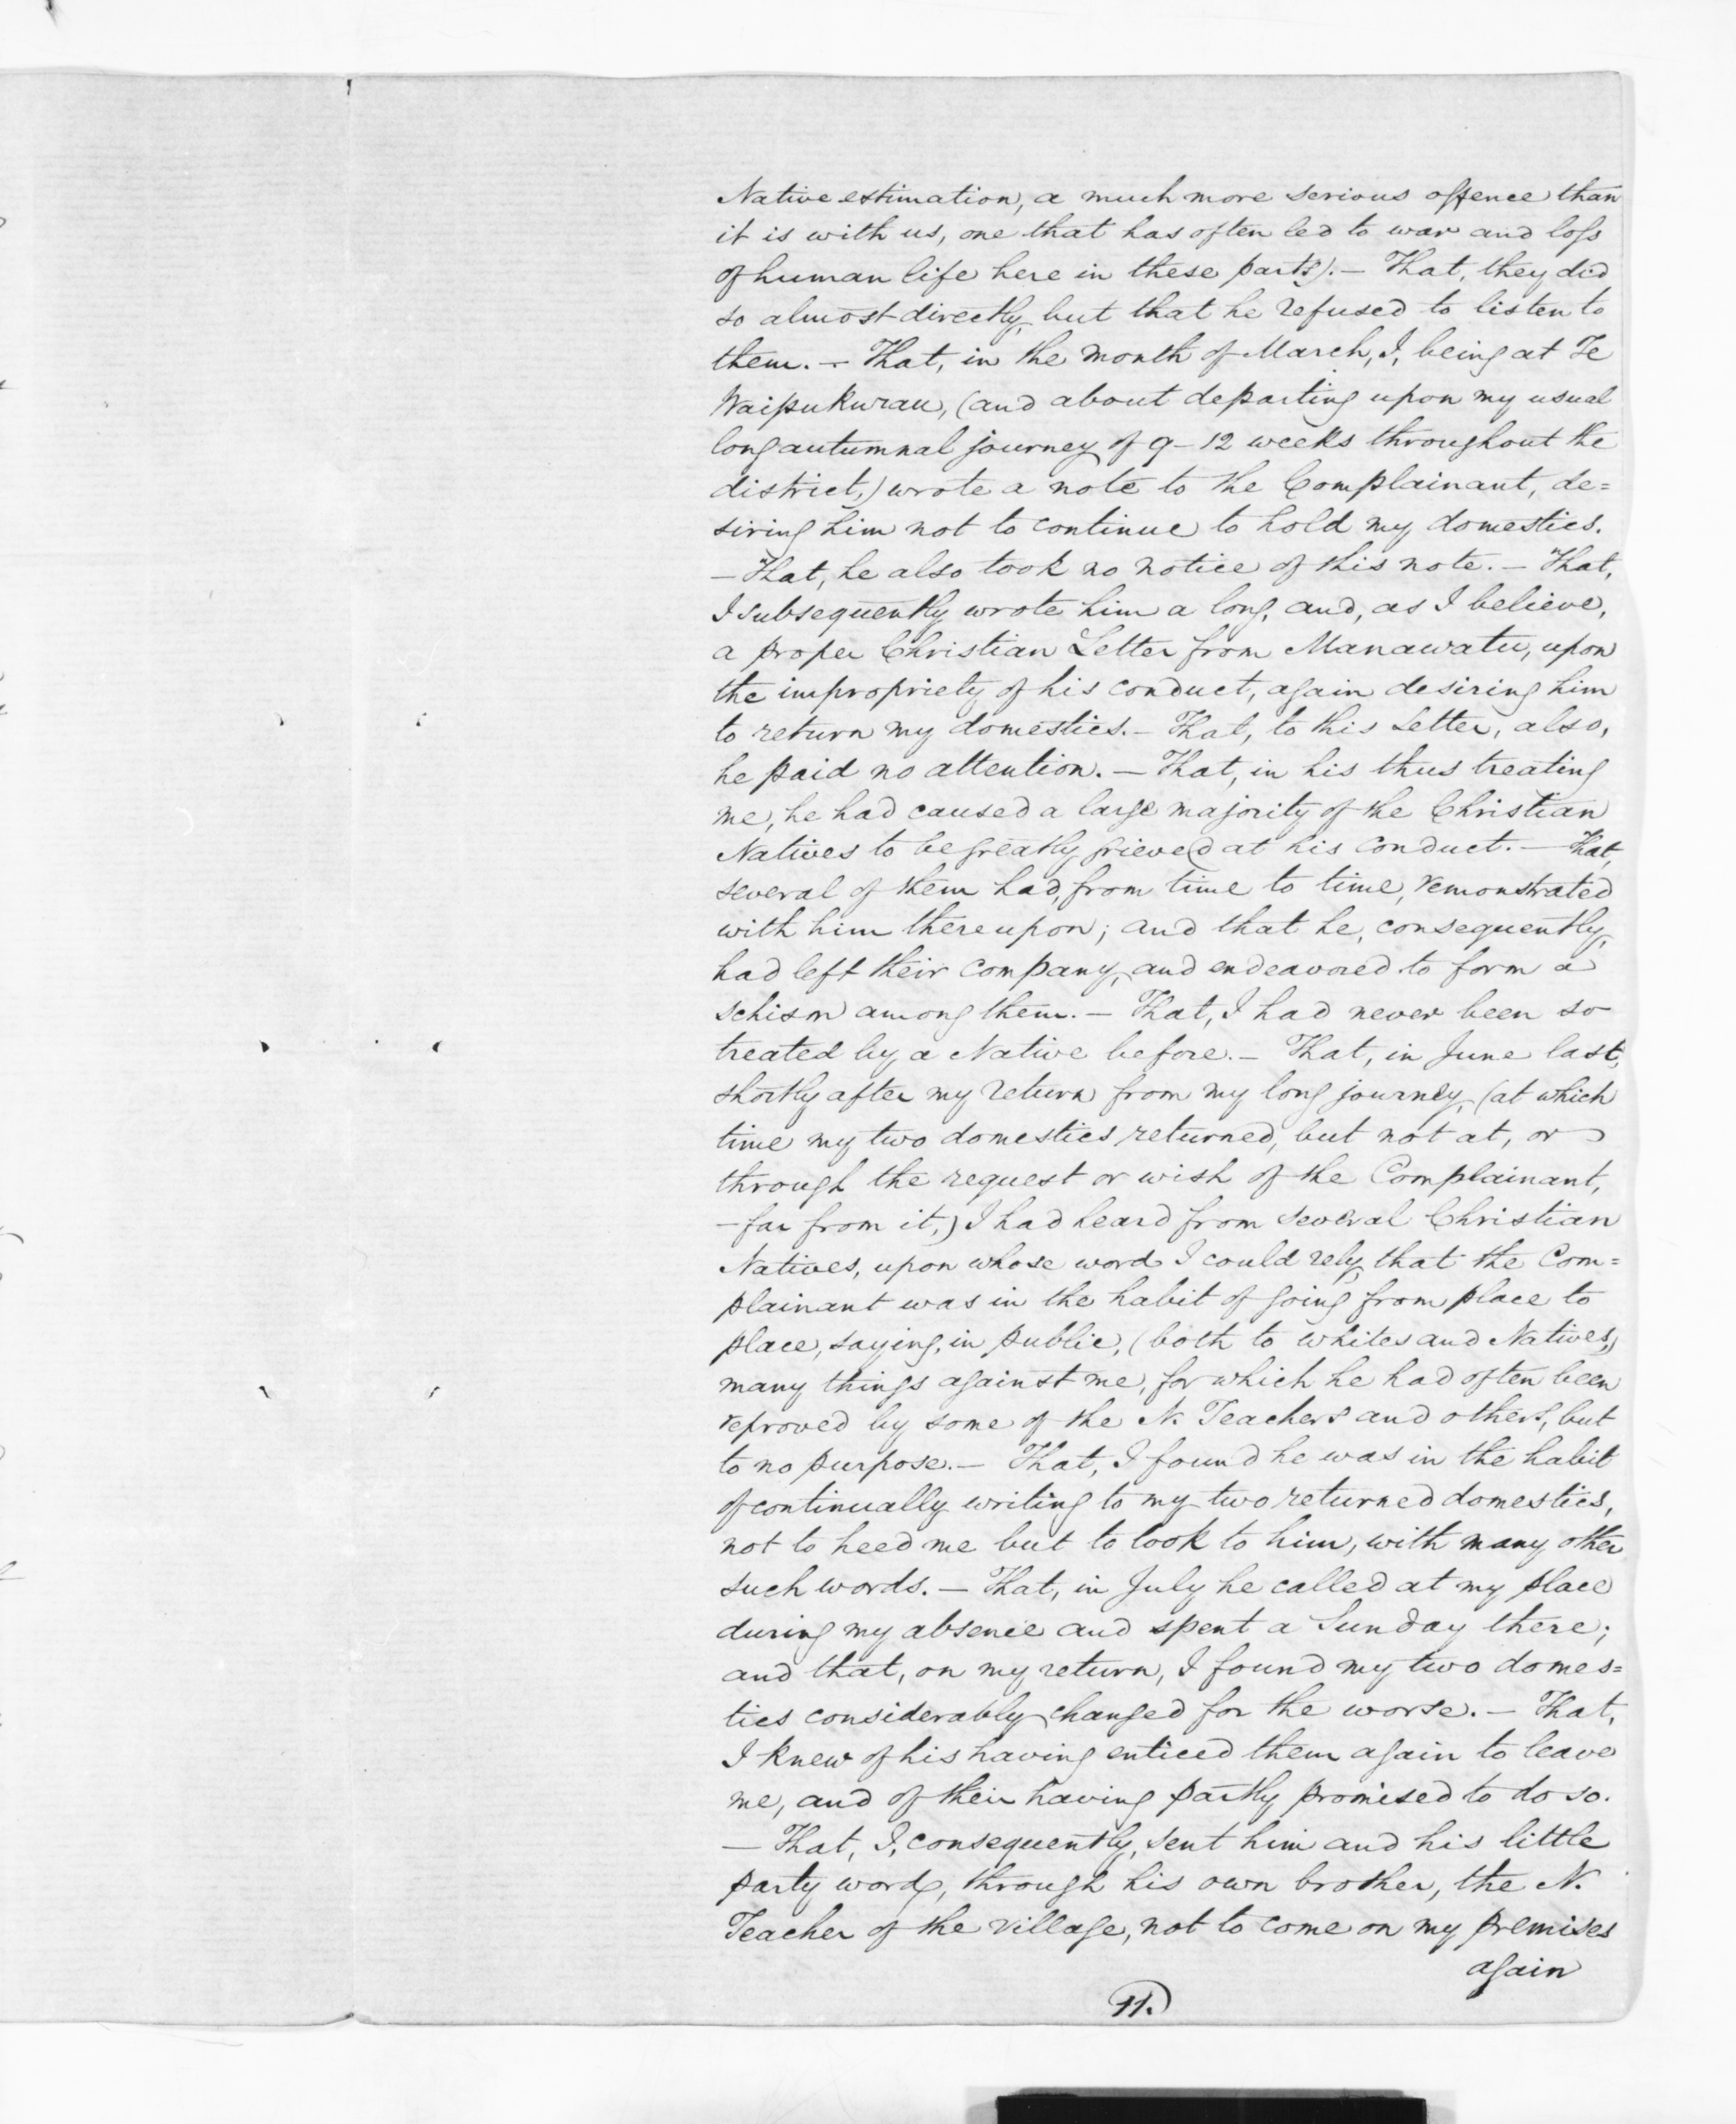 Native estimation, a much more serious offence than
it is with us, one that has often led to war and loss
of human life here in these parts).— That, they did
so almost directly, but that he refused to listen to
them.— That, in the month of March, I, being at Te
Waipukurau, (and about departing upon my usual
long autumnal journey of 9–12 weeks throughout the
district,) wrote a note to the Complainant, de=
siring him not to continue to hold my domestics.
—That, he also took no notice of this note.— That,
I subsequently wrote him a long, and, as I believe,
a proper Christian Letter from Manawatu, upon
the impropriety of his conduct, again desiring him
to return my domestics.— That, to this Letter, also,
he paid no attention.— That, in his thus treating
me, he had caused a large majority of the Christian
Natives to be greatly grieved at his conduct.— That,
several of them had, from time to time, remonstrated
with him thereupon; and that he, consequently,
had left their company, and endeavored to form a
schism among them.— That, I had never been so
treated by a Native before.— That, in June last,
shortly after my return from my long journey, (at which
time my two domestics returned, but not at, or
through the request or wish of the Complainant,
—far from it,) I had heard from several Christian
Natives, upon whose word I could rely, that the Com=
plainant was in the habit of going from place to
place, saying, in public, (both to whites and Natives,)
many things against me, for which he had often been
reproved by some of the N. Teachers and others, but
to no purpose.— That, I found he was in the habit
of continually writing to my two returned domestics,
not to heed me but to look to him, with many other
such words.— That, in July he called at my place
during my absence and spent a Sunday there;
and that, on my return, I found my two domes=
tics considerably changed for the worse.— That,
I knew of his having enticed them again to leave
me, and of their having partly promised to do so.
— That, I, consequently, sent him and his little
party word, through his own brother, the N.
Teacher of the village, not to come on my premises
again
11.)